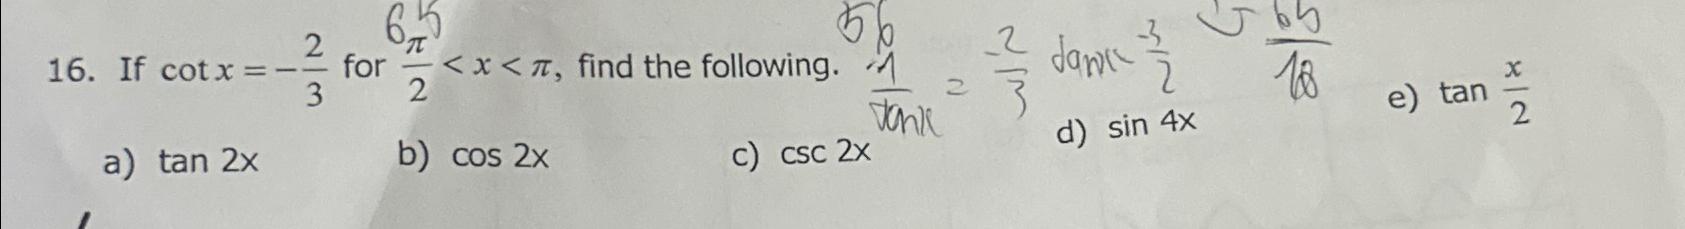 65 56 65
16. If cot x = -2/3 for π/2 < x < π, find the following. -1/tanx = -2/3 tanx -3/2 18
a) tan 2x b) cos 2x c) csc 2x d) sin 4x e) tan x/2